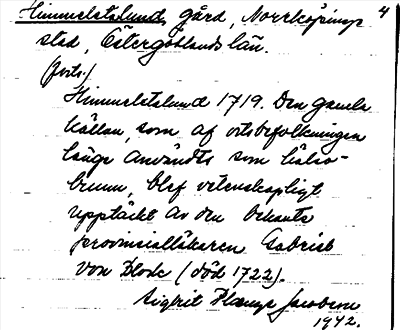 Himmelstalund, gård, Norrköpings 4
stad, Östergötlands län.
(forts.)
Himmelstalund 1719. Den gamla
källan, som af ortsbefolkningen
länge användts som hälso-
brunn, blef vetenskapligt
upptäckt av den bekante
provincialläkaren Gabriel
von Block (död 1722).
Sigrit
1942.